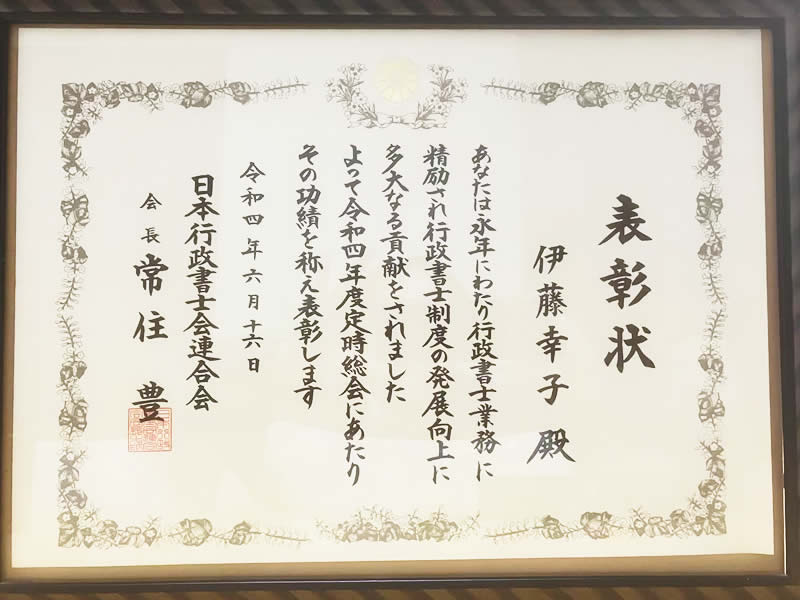 表彰状
伊藤幸子殿
あなたは永年にわたり行政書士業務に
精励され行政書士制度の発展向上に
多大なる貢献をされました
よって令和四年度定時総会にあたり
その功績を称え表彰します
令和四年六月十六日
日本行政書士会連合会
会長 常住豊